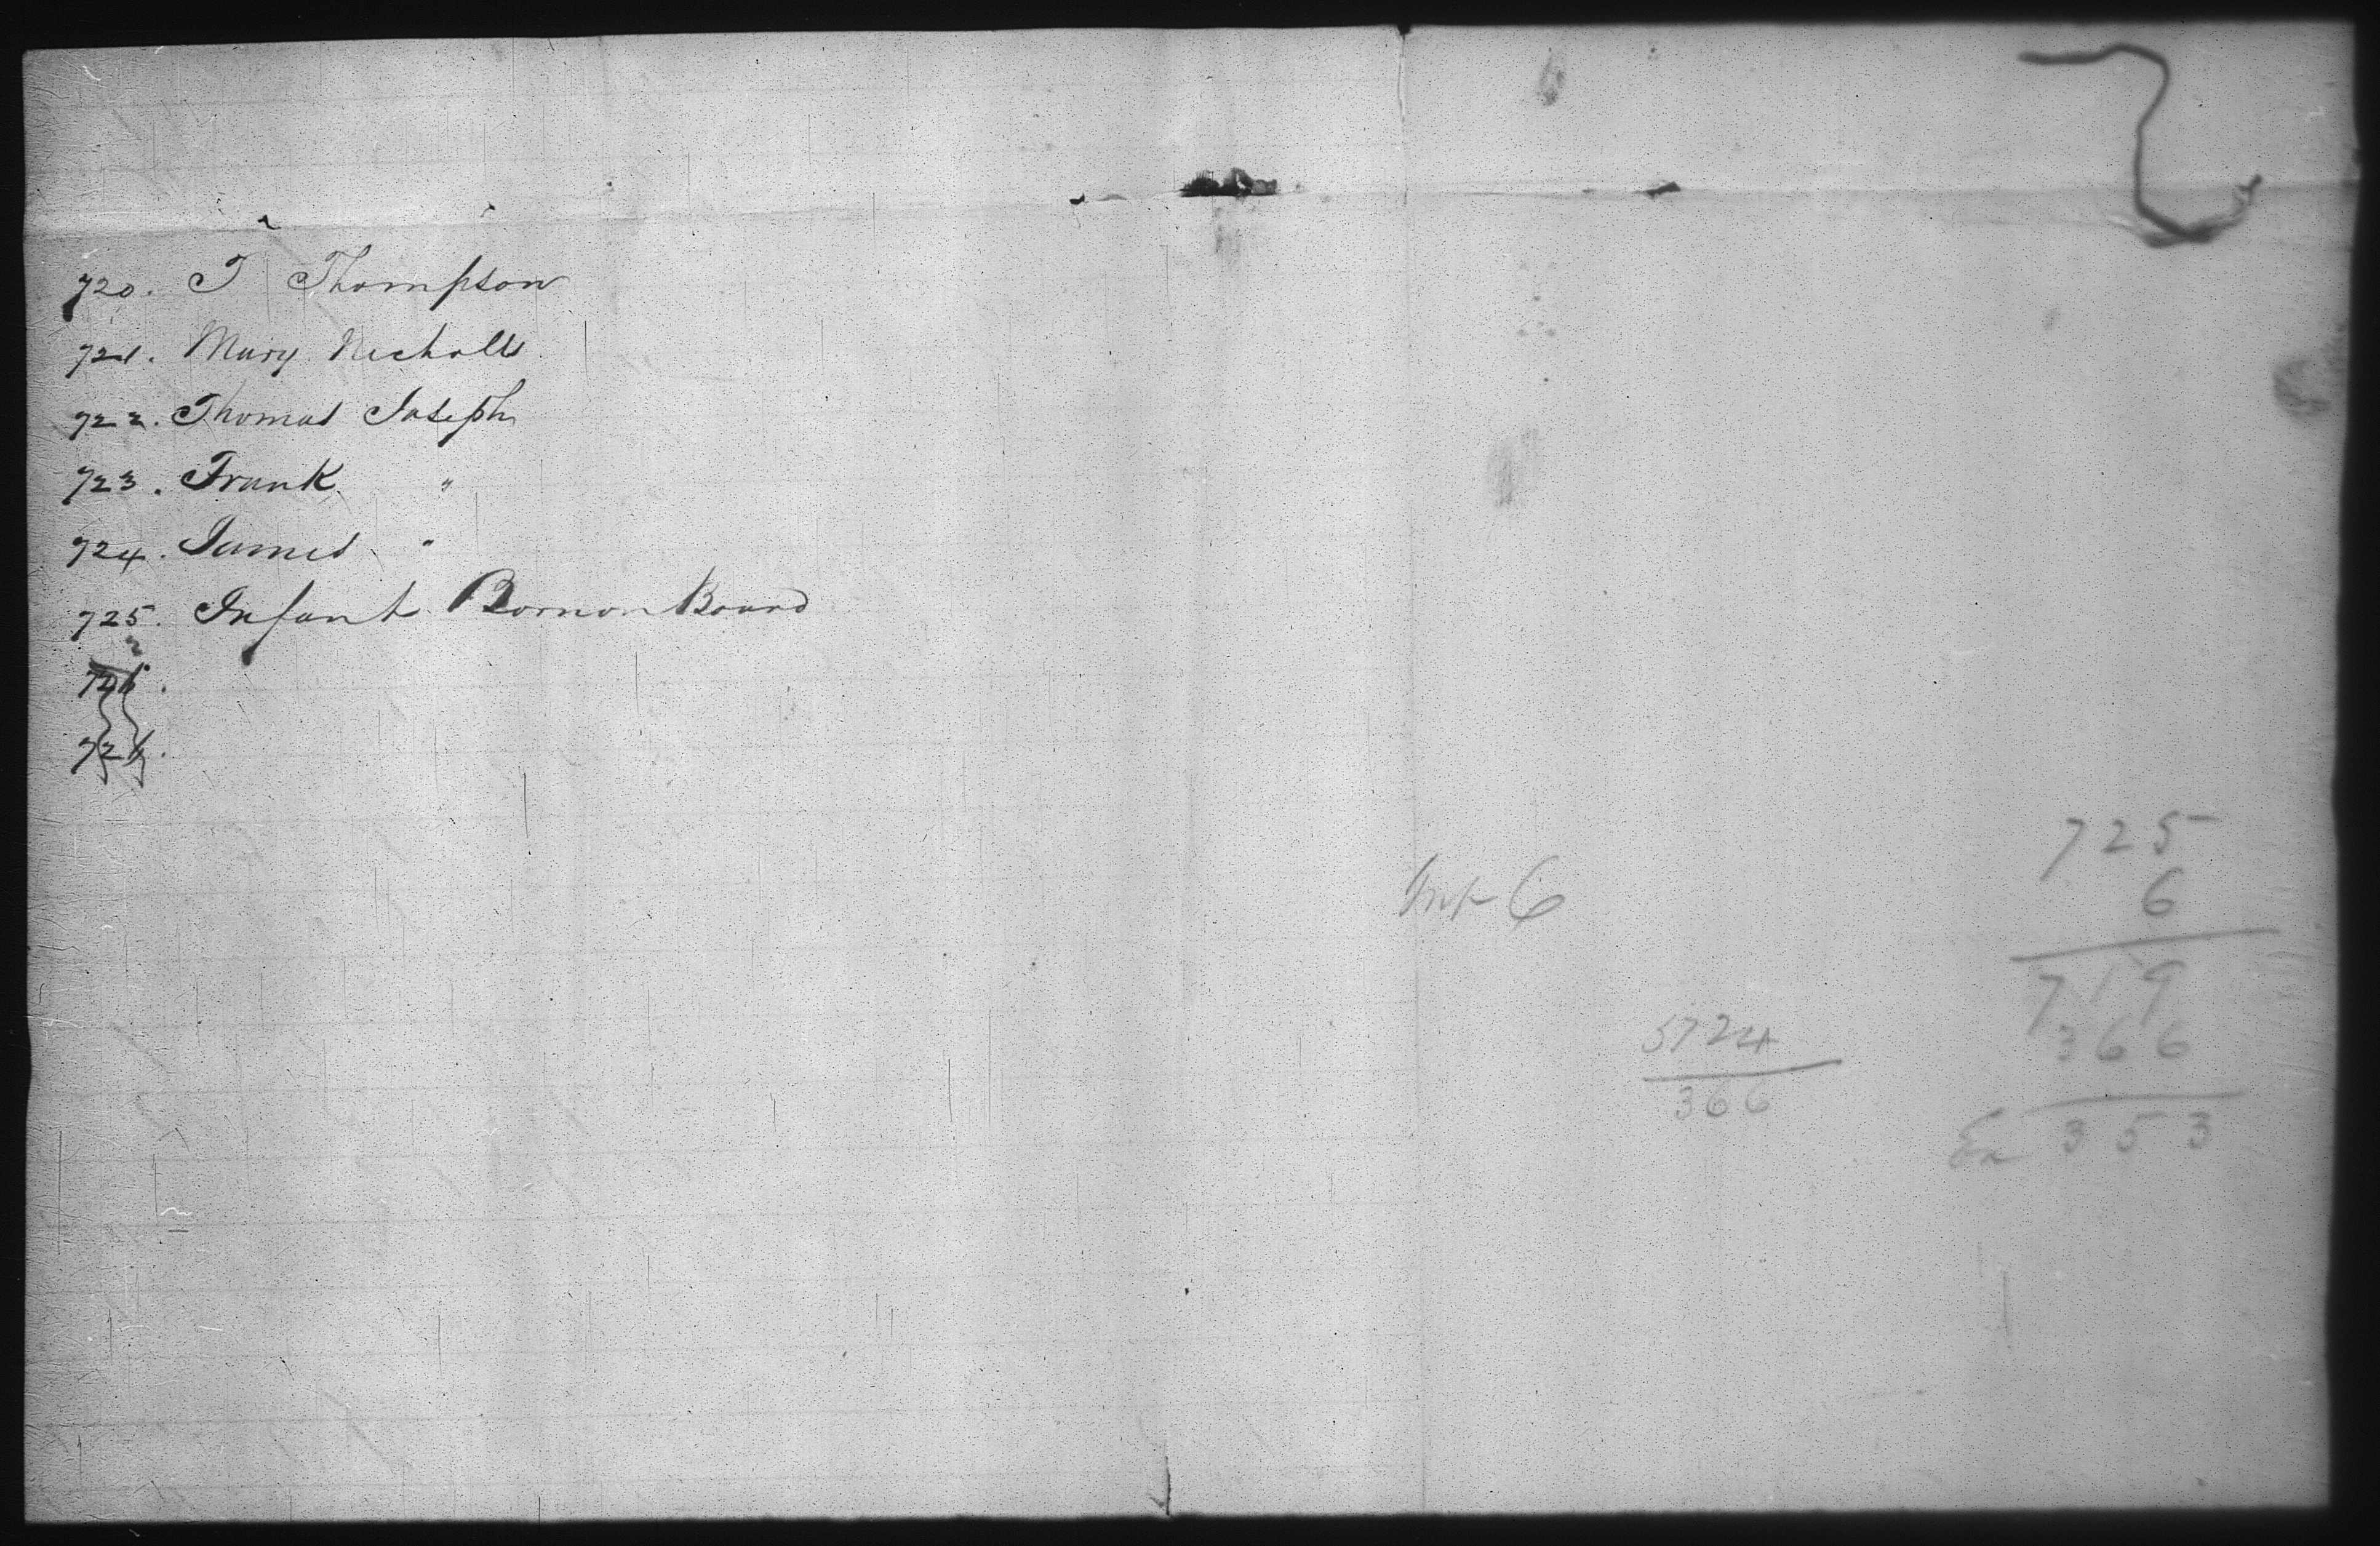 720. T Thompson
721. Mary Nicholls
722. Thomas Joseph
723. Frank "
724. James "
725. Infant Born on Board
Inf 6
725
6
719
366
Ex 353
5724
366